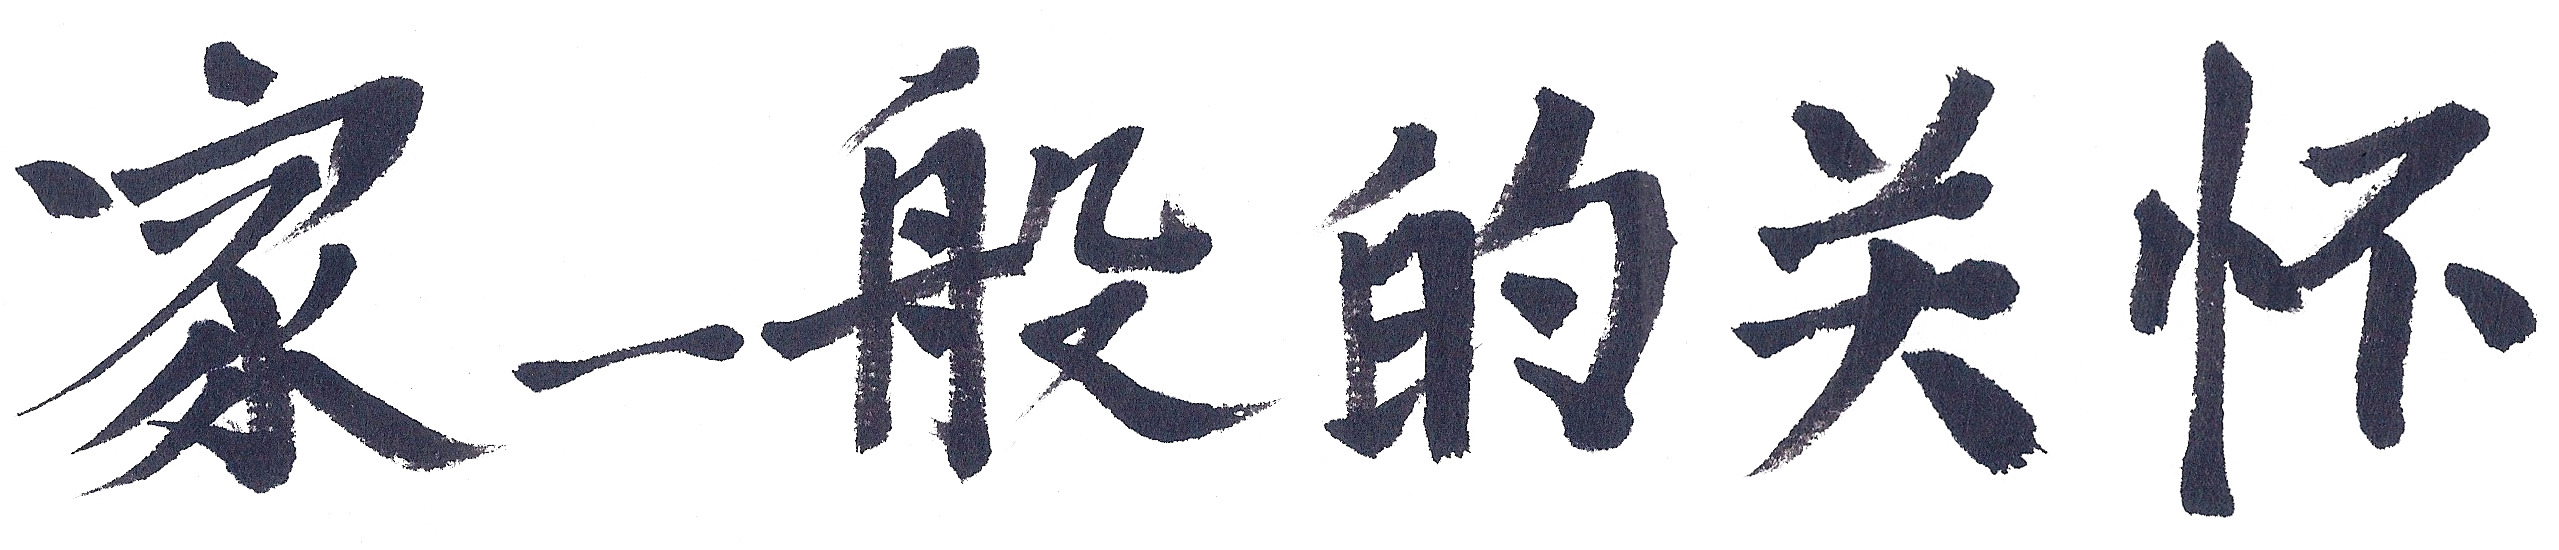 家一般的关怀